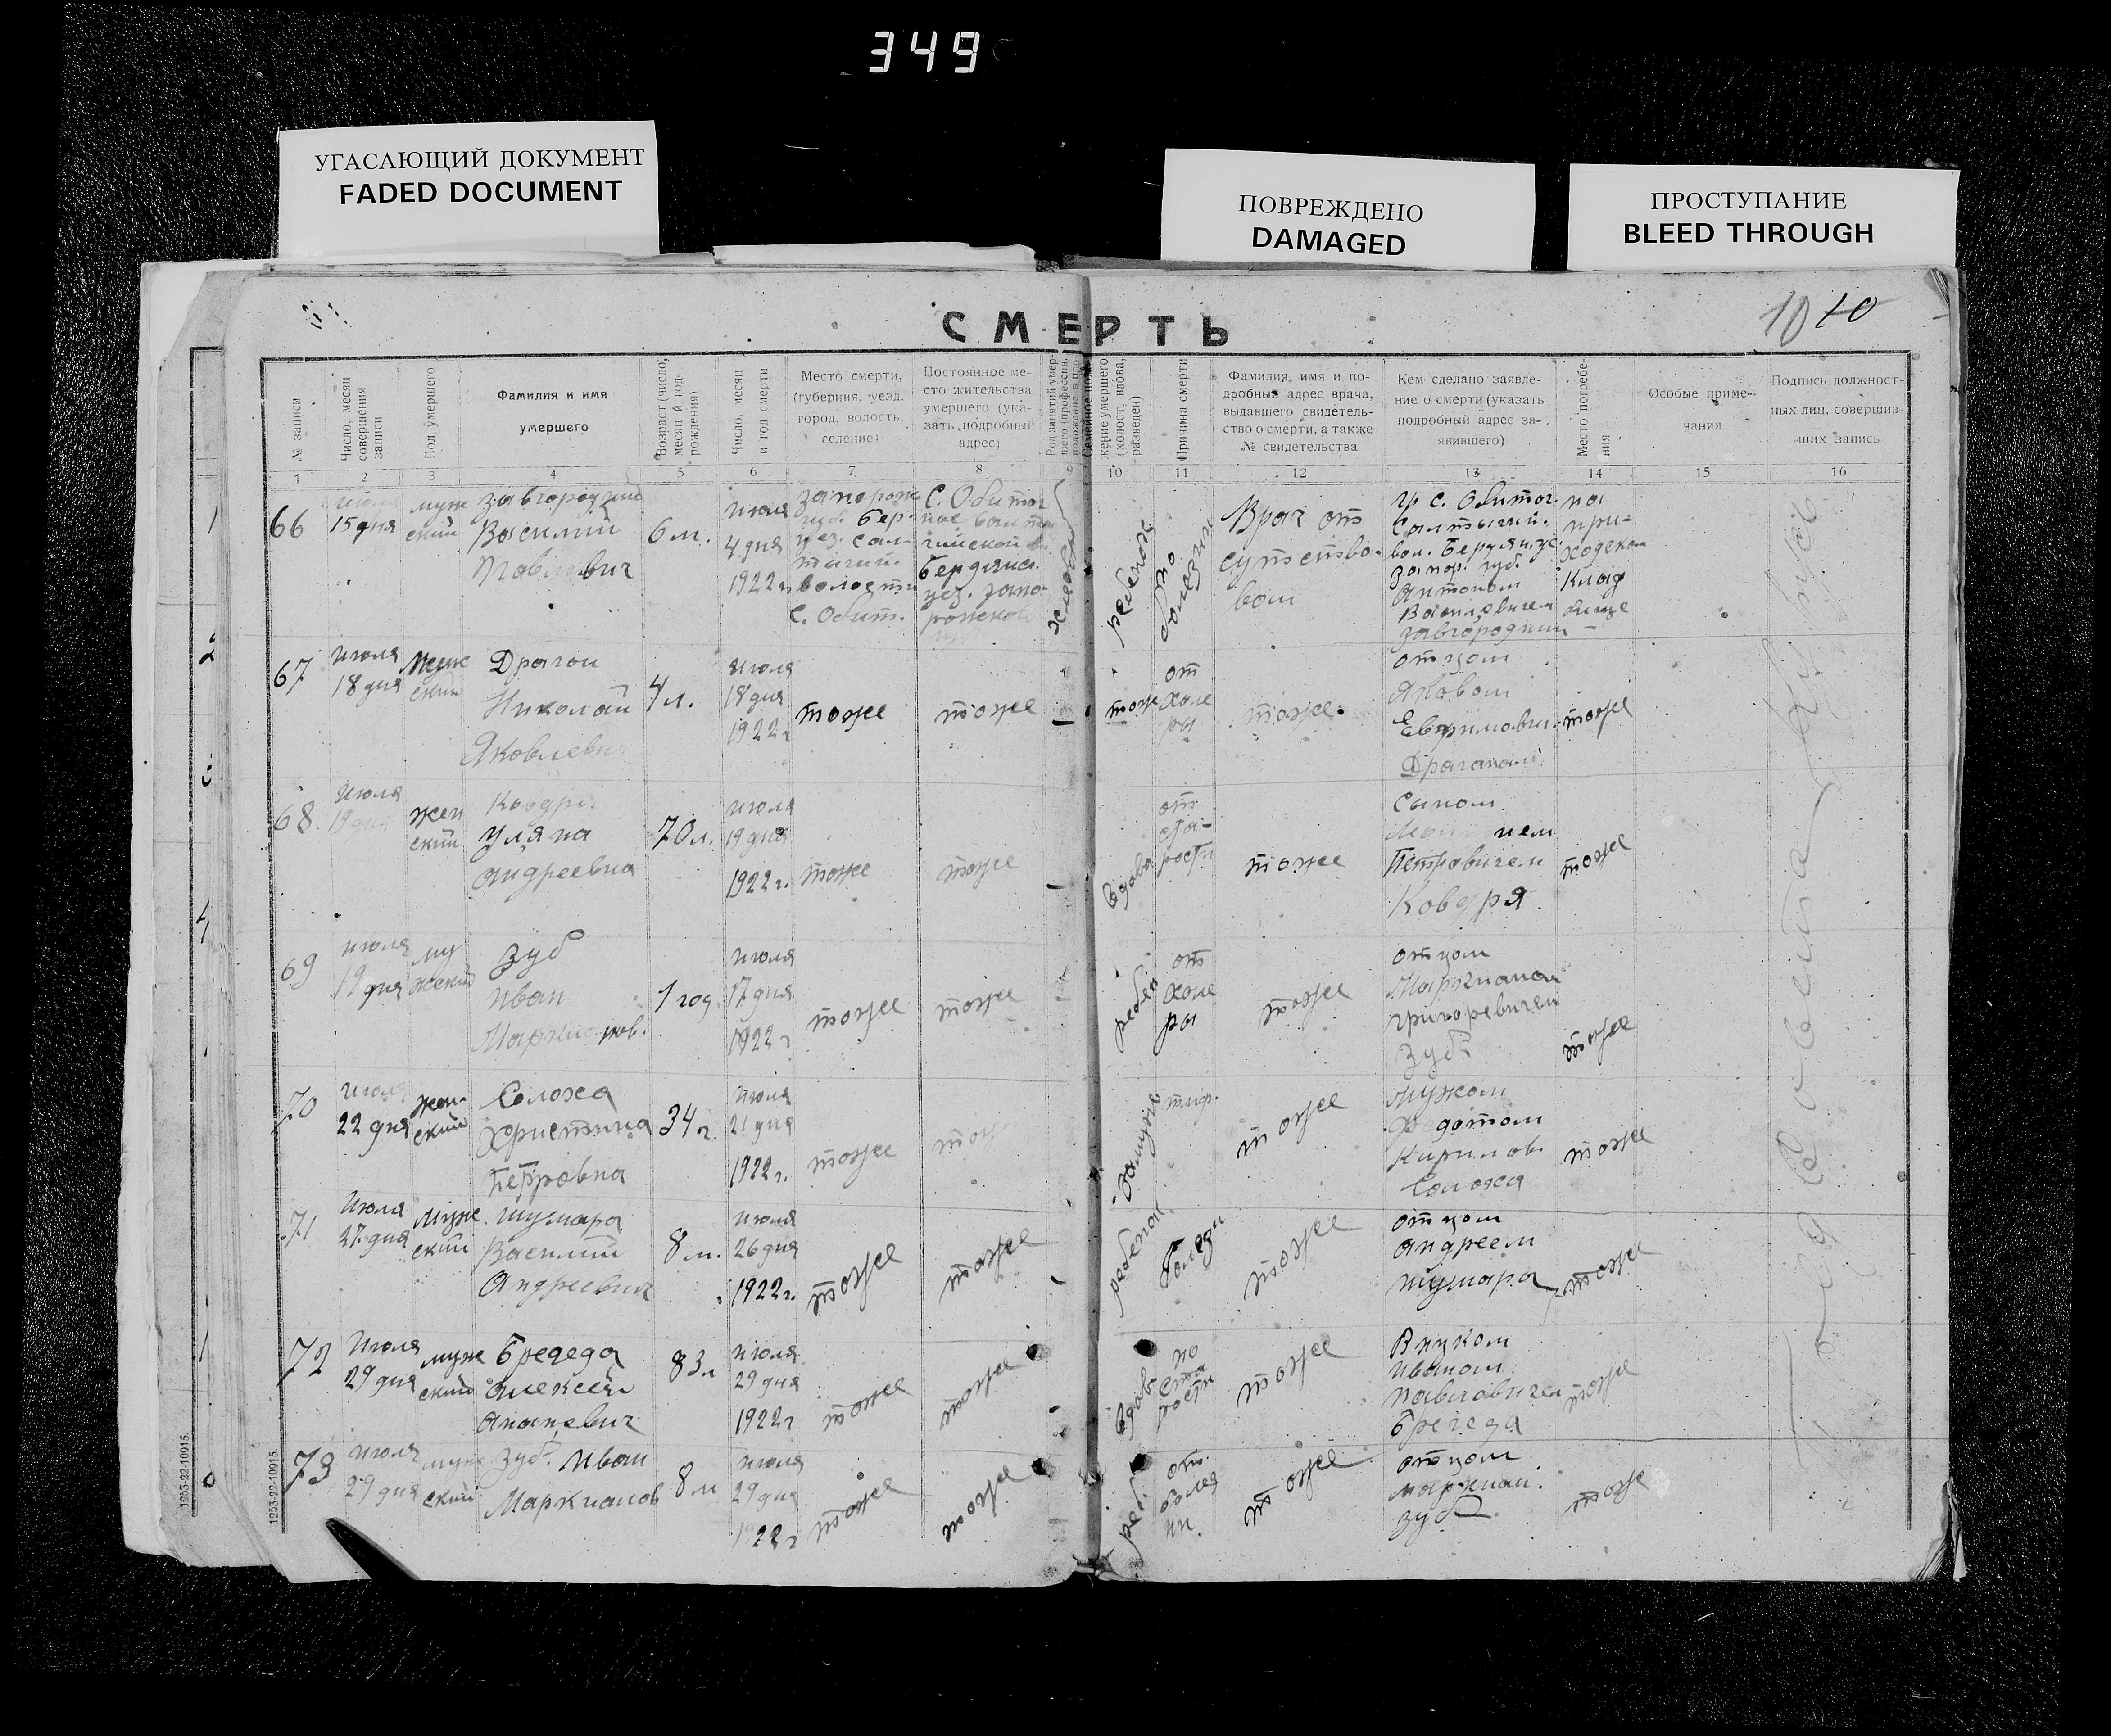 349
УГАСАЮЩИЙ ДОКУМЕНТ
FADED DOCUMENT
ПОВРЕЖДЕНО
DAMAGED
ПРОСТУПАНИЕ
BLEED THROUGH
СМЕРТЬ
10 10
№ записи
Число, месяц
совершения
записи
Пол умершего
Фамилия и имя
умершего
Возраст (число,
месяц и год
рождения)
Число, месяц
и год смерти
Место смерти,
(губерния, уезд,
город, волость,
селение)
Постоянное ме-
сто жительства
умершего (ука-
зать подробный
адрес)
жение умершего
(холост, вдова,
разведен)
Причина смерти
Фамилия, имя и по-
дробный адрес врача,
выдавшего свидетель-
ство о смерти, а также
№ свидетельства
Кем сделано заявле-
ние о смерти (указать
подробный адрес за-
явившего)
Место погребе-
ния
Особые приме-
чания
Подпись должност-
ных лиц, совершив-
ших запись
1 2 3 4 5 6 7 8 9 10 11 12 13 14 15 16
66
июля
15 дня
муж
ский
Завгородний
Василий
Павлович
6 м.
июля
4 дня
1922 г.
запорож.
губ. Бер.
уез. Сал-
тычий.
волости
С. Обит.
С. Обиточ
ное
Бердянс.
уез. запо-
рожской
хлебороб
ребенок
Врач от
сутство-
вал
гр С. Обиточ.
Салтычий.
вол. Бердян. уе.
запор. губ.
Антоном
Васильевичем
Завгородним
на
при-
ходском
клад
бище
67
июля
18 дня
муж
ский
Драган
Николай
Яковлевич
4 л.
июля
18 дня
1922 г
тоже
тоже
тоже
от
холе
ры
тоже.
отцом
Яковом
Ефримович.
Драганом
тоже
68.
июля
19 дня
жен
ский
Ковдря
Уляна
Андреевна
70 л.
июля
19 дня
1922 г.
тоже
тоже
вдова
от
ста-
рости
тоже
Сыном
Петровичем
Ковдря.
тоже
69
июля
19 дня
му
жский
Зуб
Иван
Маркианов.
1 год.
июля
17 дня
1922 г
тоже
тоже
ребен
от
холе
ры
тоже
отцом
Маркианом
Григоревичем
Зуб
тоже
70
июля
22 дня
жен
ский
Солоха
Христина
Петровна
34 г.
июля
21 дня
1922 г.
тоже
тоже
замужн
тиф.
тоже
мужом
Федотом
Кирилов
Солоха
тоже
71
июля
27 дня
муж
ский
Шумара
Василий
Андреевич
8 м.
июля
26 дня
1922 г.
тоже
тоже
ребенок
тоже
отцом
Андреем
Шумара
тоже
72
июля
29 дня
муж
ский
Бречеда
Алексей
Ананевич
83 л
июля
29 дня
1922 г
тоже
тоже
вдов.
по
ста
рости
тоже
Внуком
Иваном
Павловичем
Бречеда
тоже
73
июля
29 дня
муж
ский
Зуб. Иван
Маркианов
8 м
июля
29 дня
1922 г
тоже
тоже
реб.
от.
тоже
отцом
маркиан.
зуб.
тоже
1253-22-10915.
1253-22-10915.